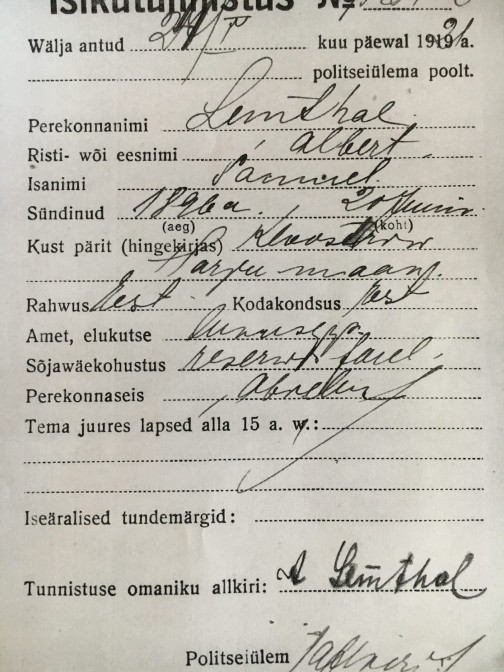 Isikutunnistus №
Wälja antud 24/V kuu päewal 1921 a.
politseiülema poolt.
Perekonnanimi Lemthal
Risti- wõi eesnimi Albert
Isanimi Samuel
Sündinud 1896 a. 20 Juunil
(aeg) (koht)
Kust pärit (hingekirjas) Kloostri
Harju maak.
Rahwus Eest Kodakondsus Eest
Amet, elukutse
Sõjawäekohustus reserwis
Perekonnaseis Abielus
Tema juures lapsed alla 15 a. w.:
Iseäralised tundemärgid:
Tunnistuse omaniku allkiri: A Lemthal
Politseiülem